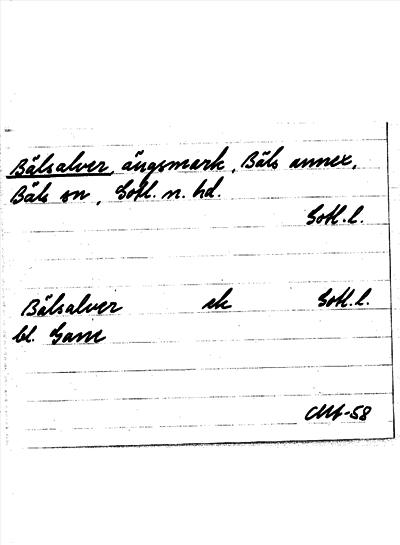 Bälsalver, ängsmark, Bäls annex,
Bäls sn, Gotl. n. hd.
Gotl. l.
Bälsalver ek Gotl. l.
bl. Gam
-58